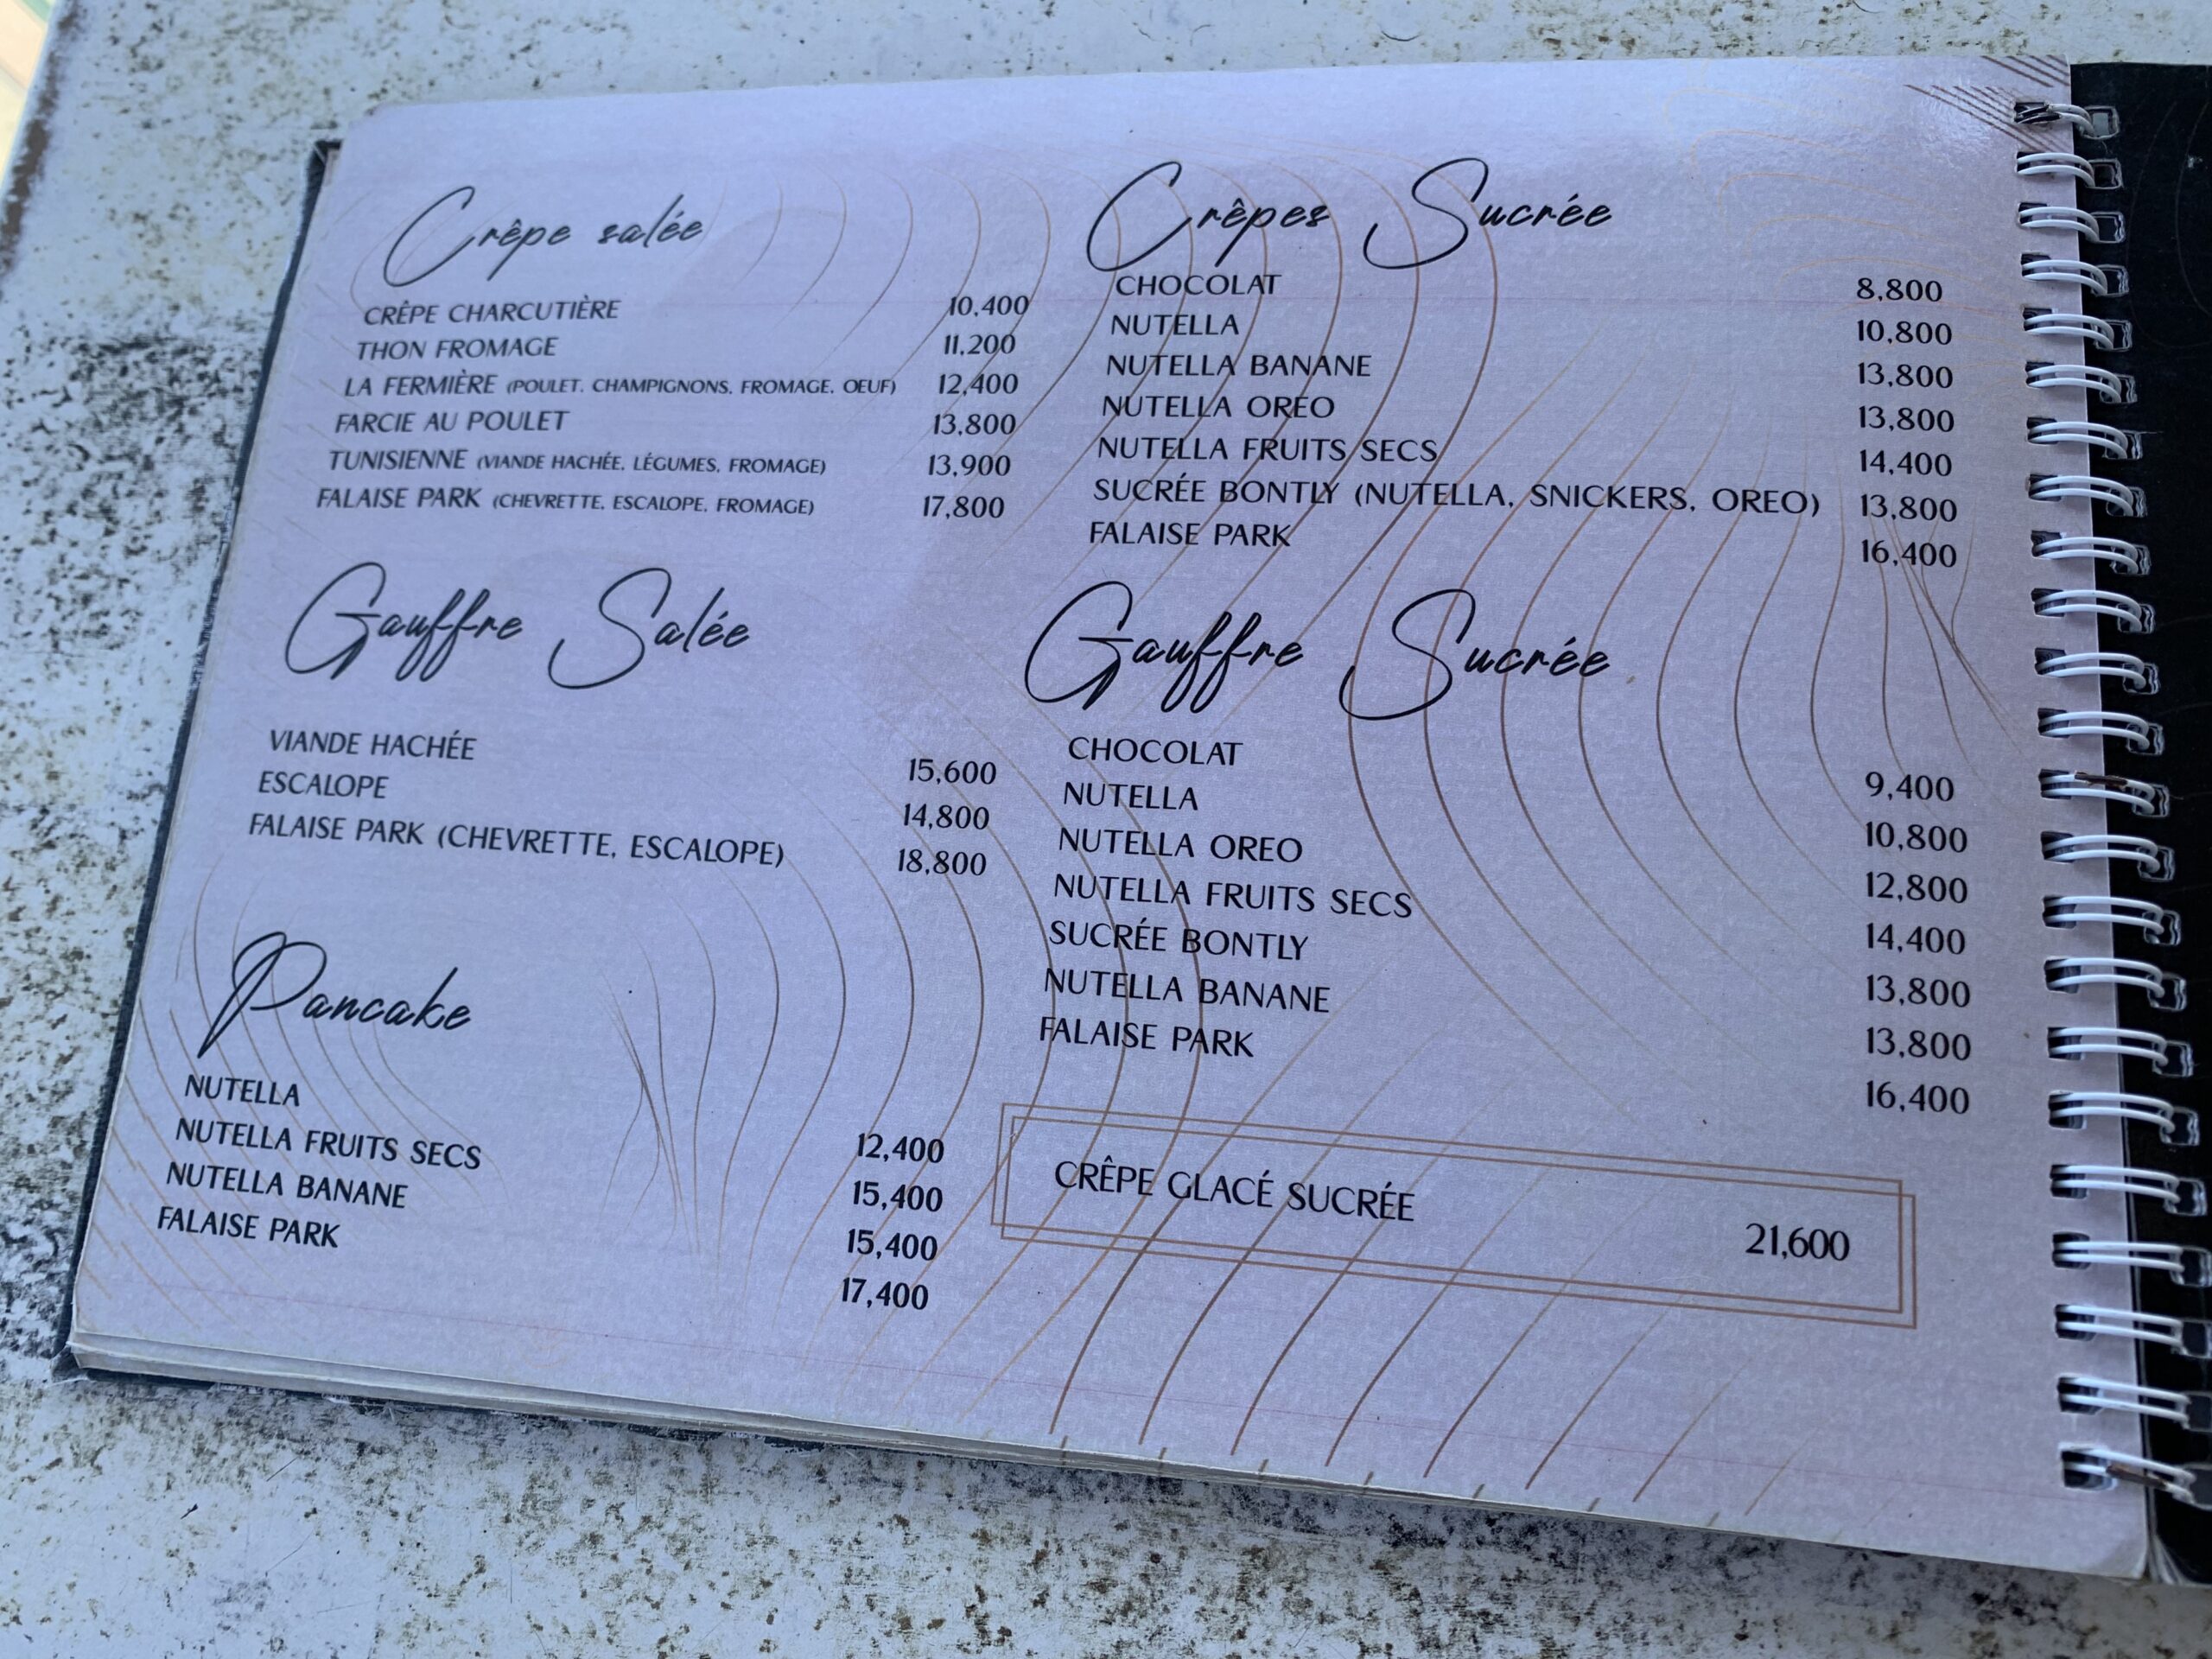 Crêpe salée
CRÊPE CHARCUTIÈRE 10,400
THON FROMAGE 11,200
LA FERMIÈRE (POULET, CHAMPIGNONS, FROMAGE, OEUF) 12,400
FARCIE AU POULET 13,800
TUNISIENNE (VIANDE HACHÉE, LÉGUMES, FROMAGE) 13,900
FALAISE PARK (CHEVRETTE, ESCALOPE, FROMAGE) 17,800
Gauffre Salée
VIANDE HACHÉE 15,600
ESCALOPE 14,800
FALAISE PARK (CHEVRETTE, ESCALOPE) 18,800
Pancake
NUTELLA 12,400
NUTELLA FRUITS SECS 15,400
NUTELLA BANANE 15,400
FALAISE PARK 17,400
Crêpes Sucrée
CHOCOLAT 8,800
NUTELLA 10,800
NUTELLA BANANE 13,800
NUTELLA OREO 13,800
NUTELLA FRUITS SECS 14,400
SUCRÉE BONTLY (NUTELLA, SNICKERS, OREO) 13,800
FALAISE PARK 16,400
Gauffre Sucrée
CHOCOLAT 9,400
NUTELLA 10,800
NUTELLA OREO 12,800
NUTELLA FRUITS SECS 14,400
SUCRÉE BONTLY 13,800
NUTELLA BANANE 13,800
FALAISE PARK 16,400
CRÊPE GLACÉ SUCRÉE 21,600